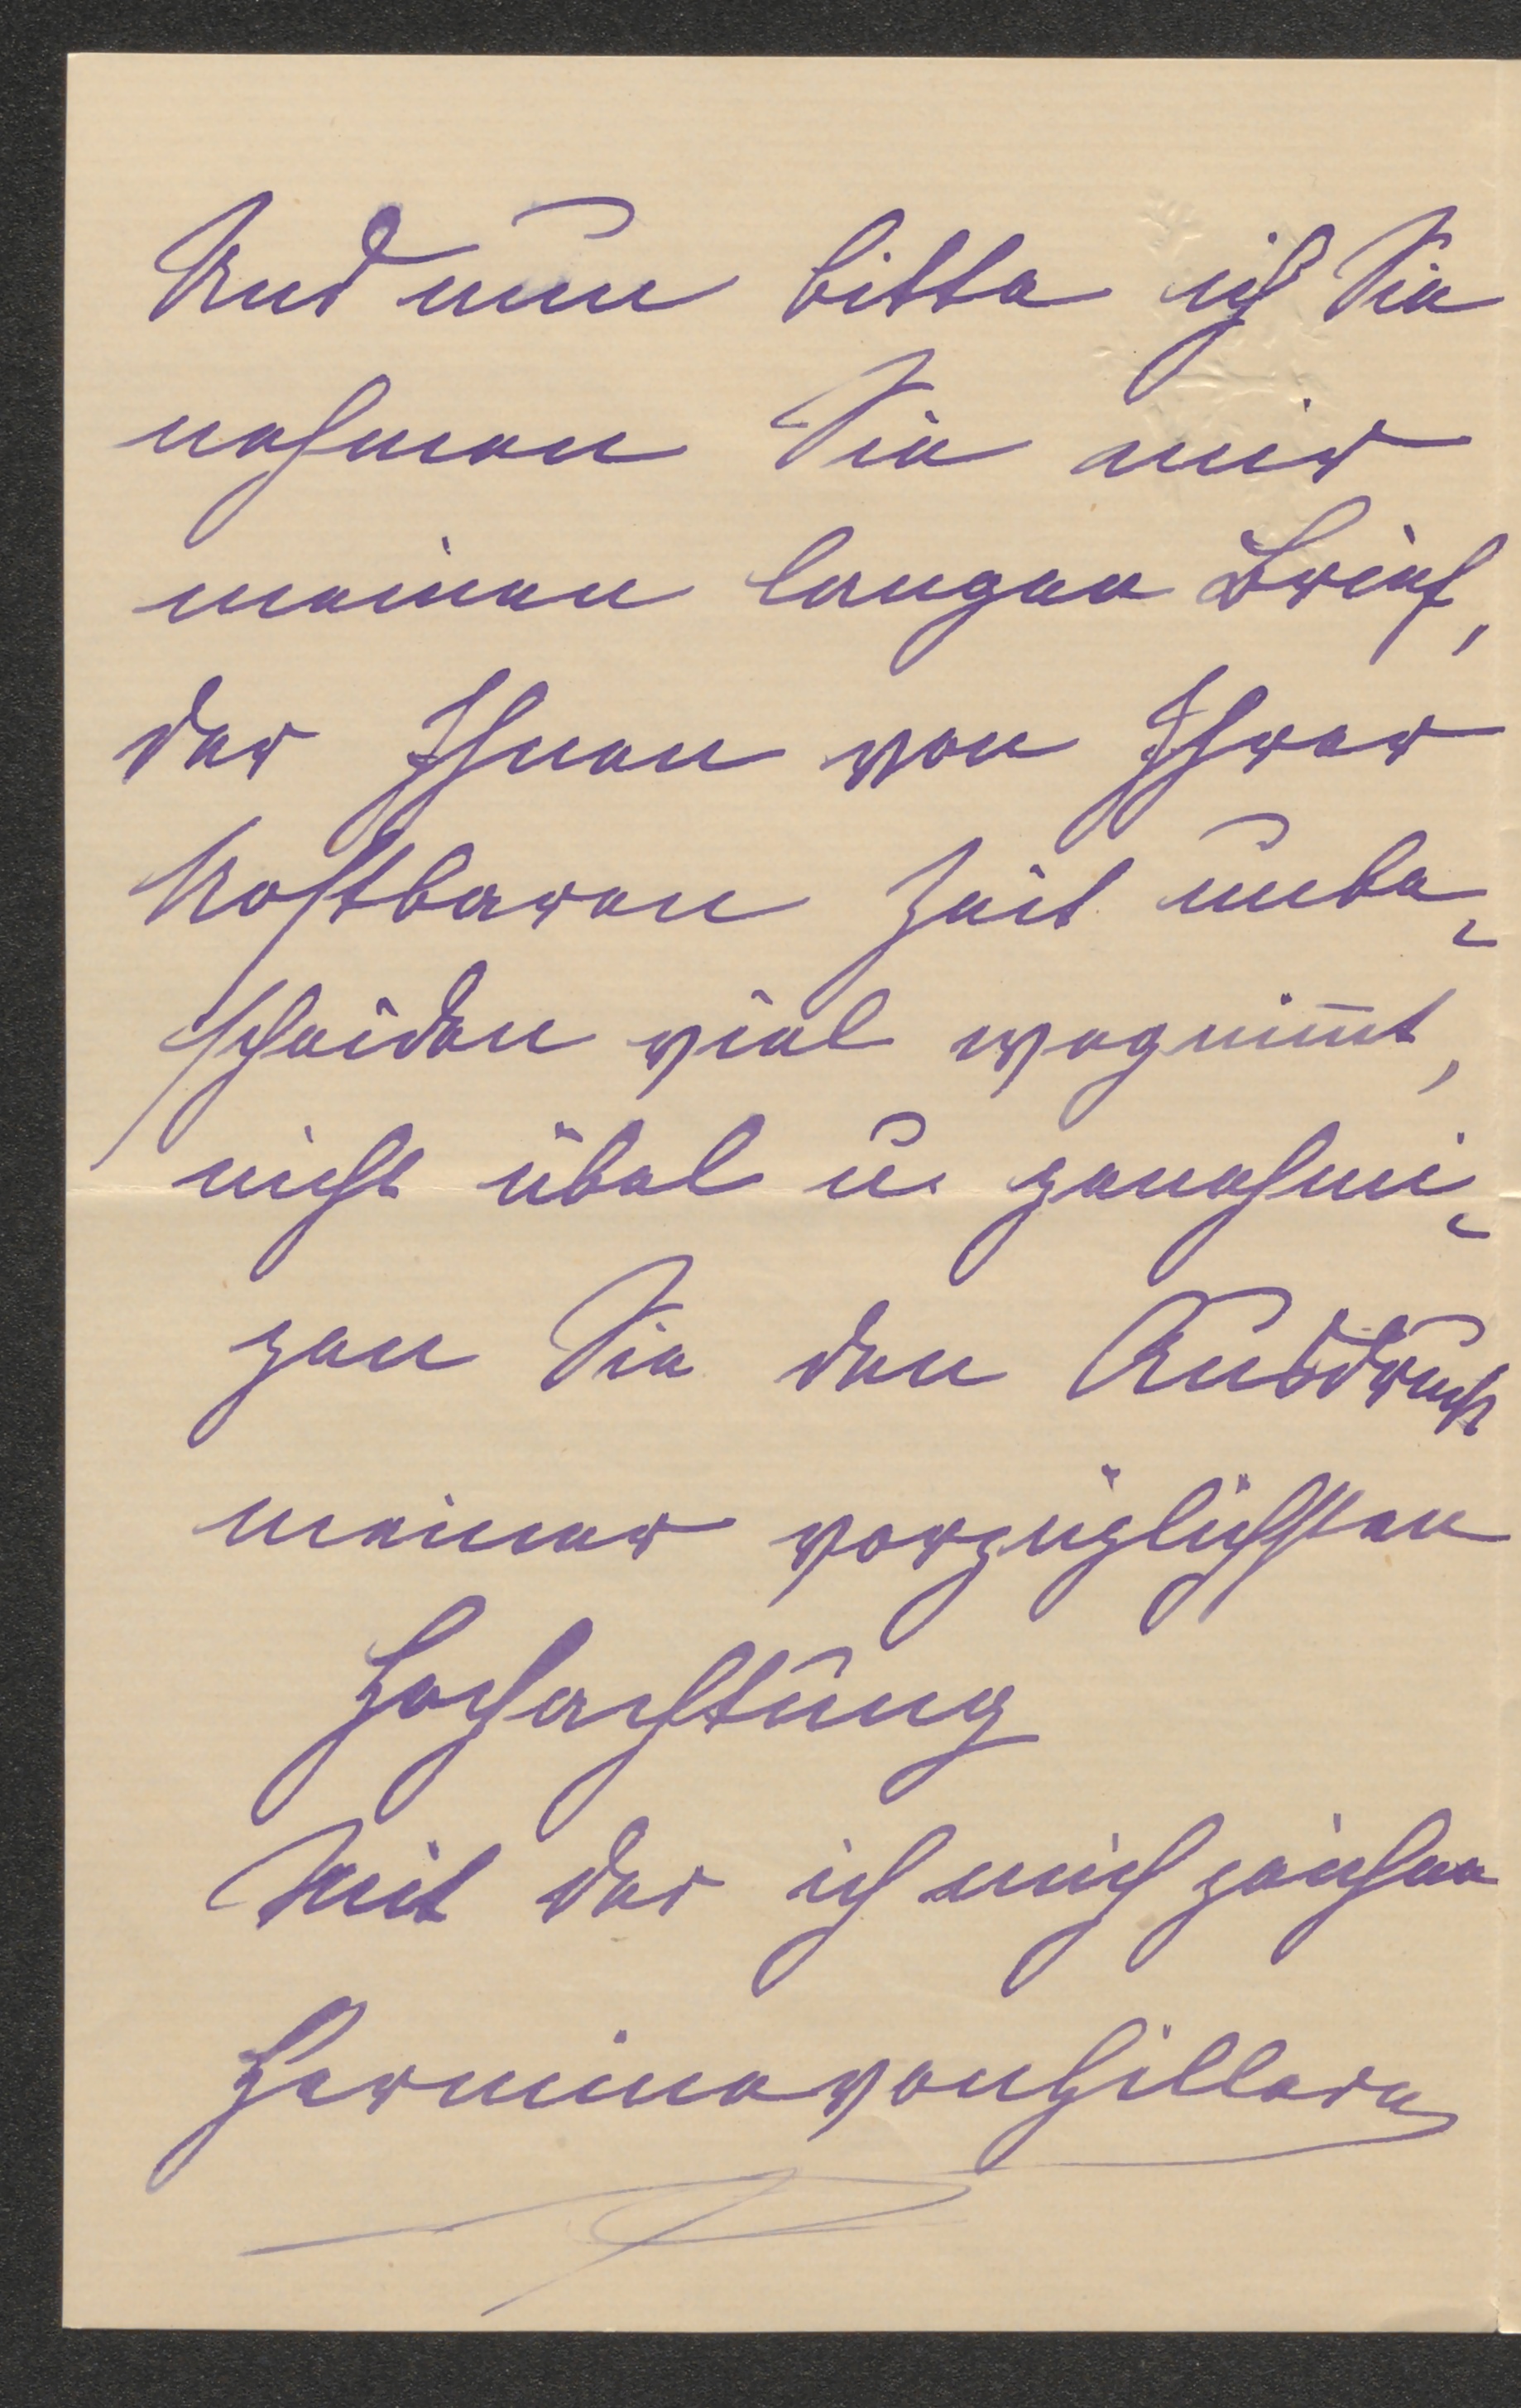 Und nun bitte ich Sie
nehmen Sie mir
meinen langen Brief,
der Ihnen von Ihrer
kostbaren Zeit unbe-
scheiden viel wegnim̅t,
nicht übel u. genehmi-
gen Sie den Ausdruck
meiner vorzüglichsten
Hochachtung
Mit der ich mich zeichne
Hermine von Hillern